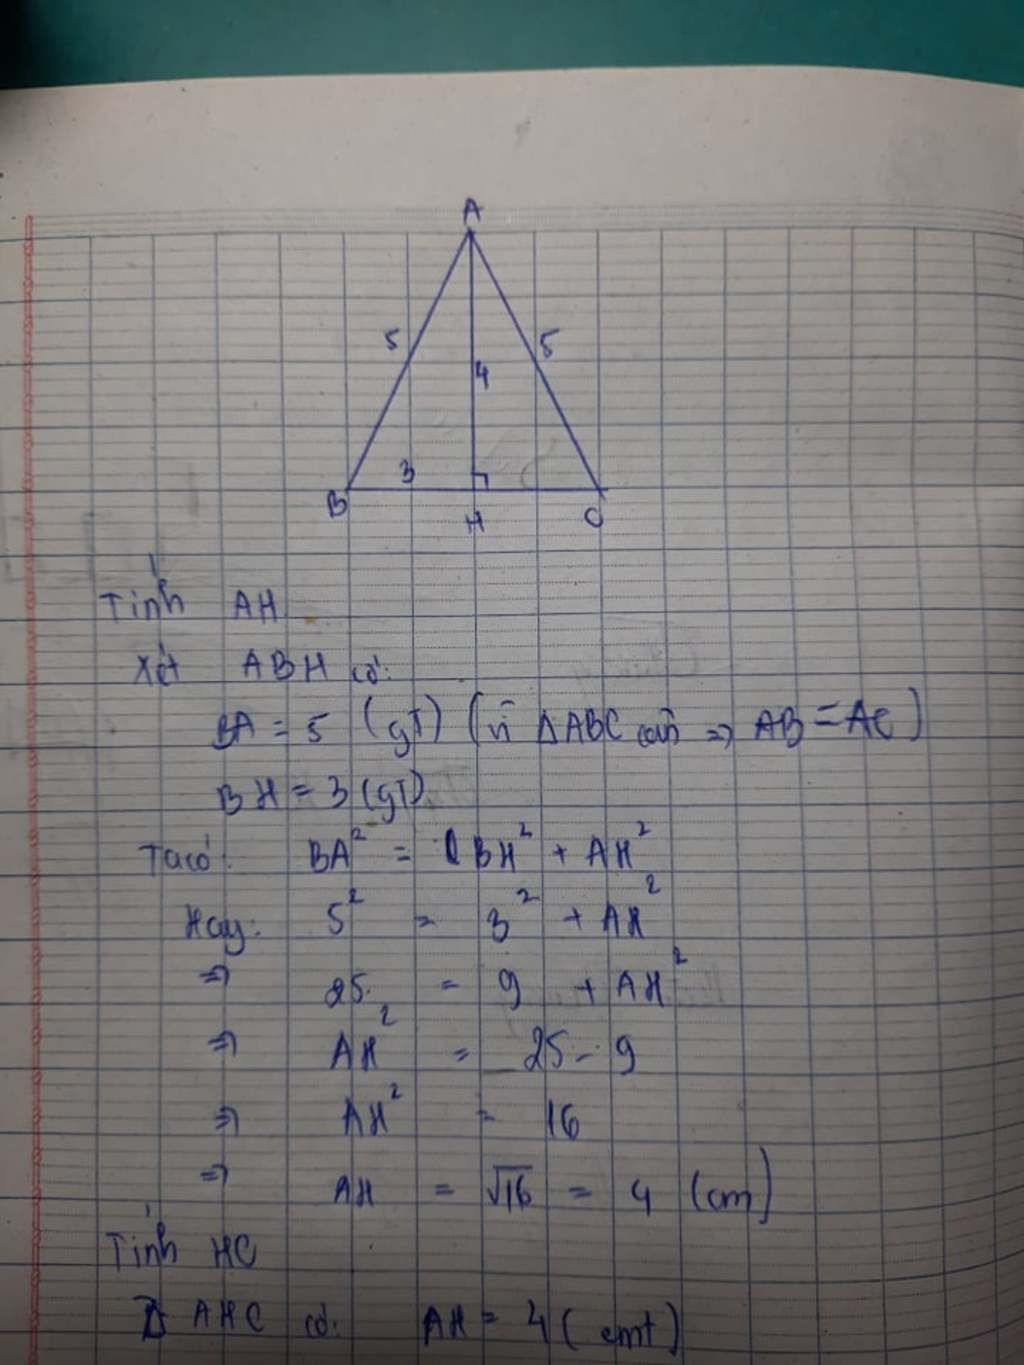 A
5 5
4
3
B H C
Tính AH
Xét ABH có:
BA = 5 (gT) (vì ΔABC cân => AB = AC)
BH = 3 (gT)
Ta có: BA² = BH² + AH²
Hay: 5² = 3² + AH²
=> 25 = 9 + AH²
=> AH² = 25 - 9
=> AH² = 16
=> AH = √16 = 4 (cm)
Tính HC
Δ AHC có: AH = 4 (cmt)